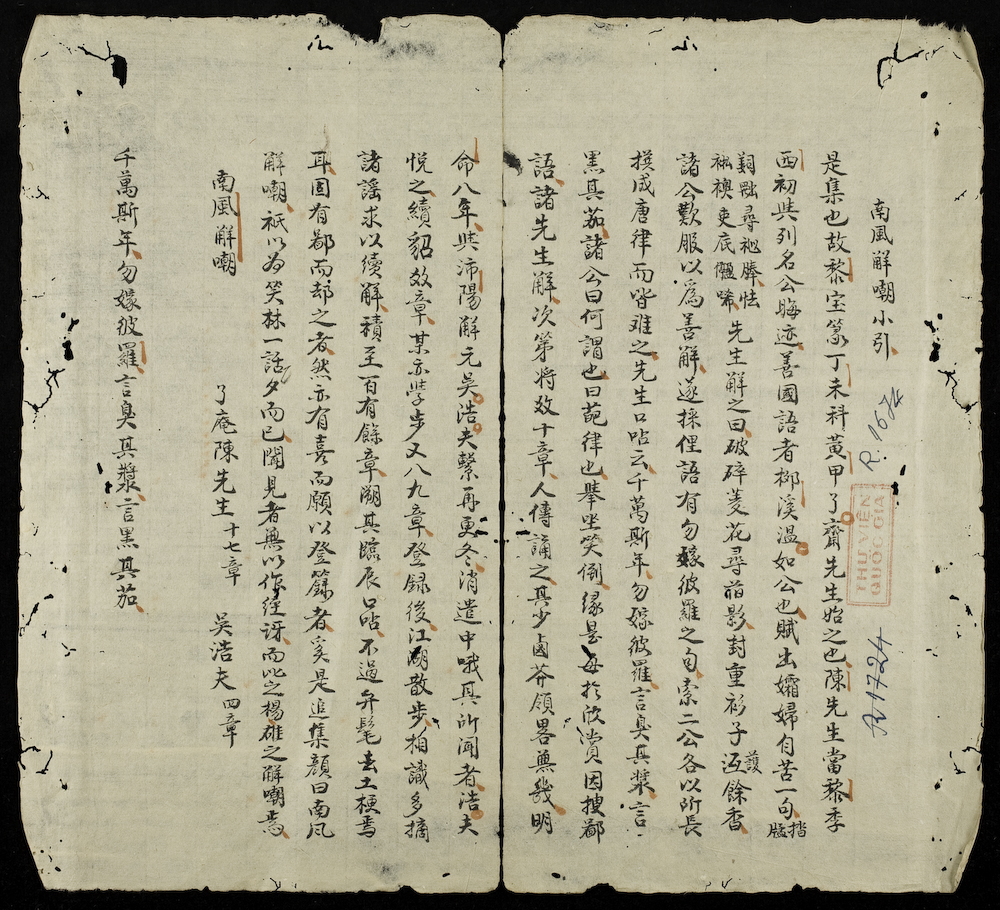 南風解嘲小引
是集也故黎宝篆丁未科黃甲了齋先生始之也陳先生當黎季
西初共列名公晦迹善國語者柳溪溫如公也賦出孀婦自苦一句
尋 怯
底 唏 先生解之曰破碎菱花尋舊影封重衫子 護 餘香
諸公歎服以為善解遂採俚語有勿嫁彼羅之句索二公各以所長
撰成唐律而皆难之先生口呫云千萬斯年勿嫁彼羅言臭其漿言
黑其茄諸公曰何謂也曰葩律也舉坐笑倒缘是每於欣賞因搜鄙
語諸先生解次第将效十章人傳誦之其少鹵莽領畧無幾明
命八年与沛陽解元吳浩夫繫再更冬消遣中哦其所闻者浩夫
悅之續貂效章某亦學步又八九章登録後江湖散步相識多摘
諸謠求以續解積至百有餘章溯其臨辰口呫不過弁髦去土梗焉
耳固有鄙而却之者然亦有喜而願以登籙者奚是追集顏曰南风
解嘲祇以為笑林一話夕而已聞見者無以作經訝而此之楊雄之解嘲焉
南風解嘲
了庵陳先生 十七章 吳浩夫 四章
千萬斯年勿嫁彼羅言臭其漿言黑其茄
R.1674
R1724
THƯ VIỆN
QUỐC GIA